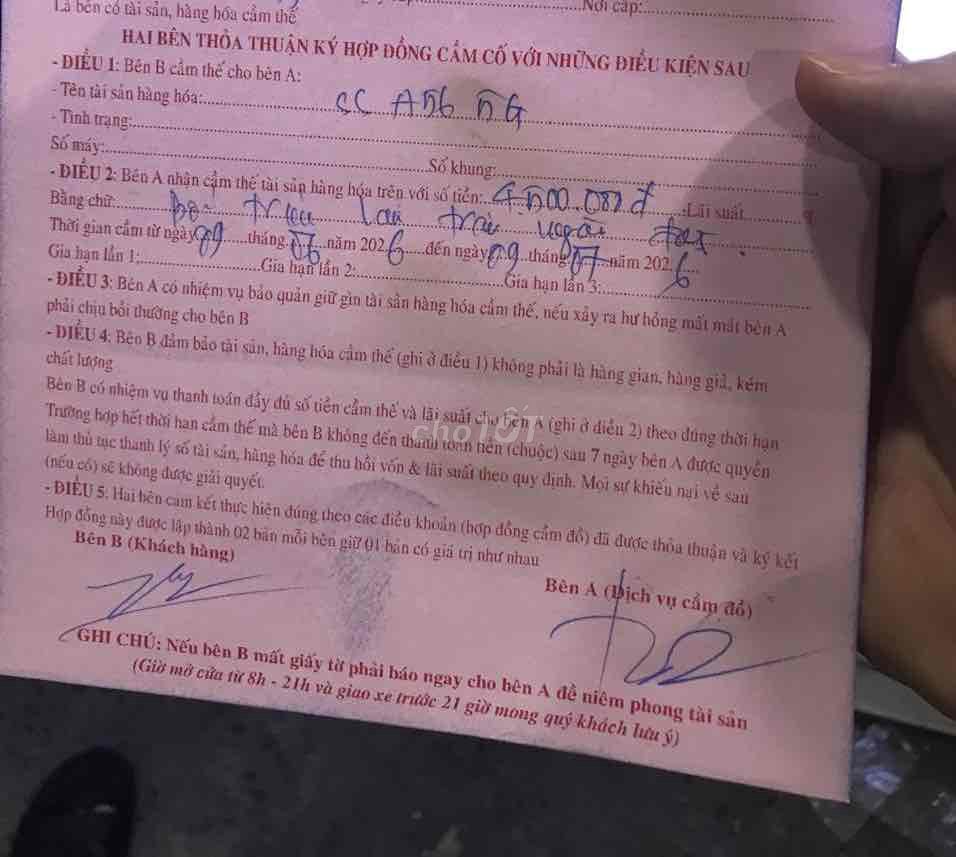 Là bên có tài sản, hàng hóa cầm thế
Nơi cấp:
HAI BÊN THỎA THUẬN KÝ HỢP ĐỒNG CẦM CỐ VỚI NHỮNG ĐIỀU KIỆN SAU
- ĐIỀU 1: Bên B cầm thế cho bên A:
- Tên tài sản hàng hóa: CC A56 5G
- Tình trạng:
Số máy: Số khung:
- ĐIỀU 2: Bên A nhận cầm thế tài sản hàng hóa trên với số tiền: 4.500.000đ Lãi suất
Bằng chữ:
Thời gian cầm từ ngày 09 tháng 06 năm 2026 đến ngày 09 tháng 07 năm 2026
Gia hạn lần 1: Gia hạn lần 2: Gia hạn lần 3:
- ĐIỀU 3: Bên A có nhiệm vụ bảo quản giữ gìn tài sản hàng hóa cầm thế, nếu xảy ra hư hỏng mất mát bên A
phải chịu bồi thường cho bên B
- ĐIỀU 4: Bên B đảm bảo tài sản, hàng hóa cầm thế (ghi ở điều 1) không phải là hàng gian, hàng giả, kém
chất lượng
Bên B có nhiệm vụ thanh toán đầy đủ số tiền cầm thế và lãi suất cho bên A (ghi ở điều 2) theo đúng thời hạn
Trường hợp hết thời hạn cầm thế mà bên B không đến thanh toán tiền (chuộc) sau 7 ngày bên A được quyền
làm thủ tục thanh lý số tài sản, hàng hóa để thu hồi vốn & lãi suất theo quy định. Mọi sự khiếu nại về sau
(nếu có) sẽ không được giải quyết.
- ĐIỀU 5: Hai bên cam kết thực hiện đúng theo các điều khoản (hợp đồng cầm đồ) đã được thỏa thuận và ký kết
Hợp đồng này được lập thành 02 bản mỗi bên giữ 01 bản có giá trị như nhau
Bên B (Khách hàng)
Bên A (Dịch vụ cầm đồ)
GHI CHÚ: Nếu bên B mất giấy tờ phải báo ngay cho bên A để niêm phong tài sản
(Giờ mở cửa từ 8h - 21h và giao xe trước 21 giờ mong quý khách lưu ý)
choTỐT